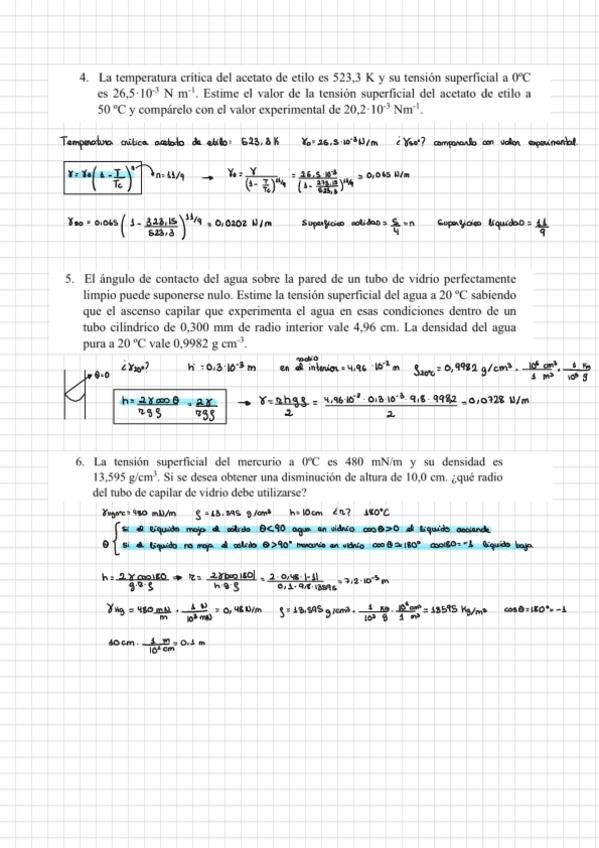 4. La temperatura crítica del acetato de etilo es 523,3 K y su tensión superficial a 0ºC
es 26,5·10⁻³ N m⁻¹. Estime el valor de la tensión superficial del acetato de etilo a
50 ºC y compárelo con el valor experimental de 20,2·10⁻³ Nm⁻¹.
Temperatura crítica acetato de etilo: 523,3 K γ₀ = 26,5·10⁻³ N/m ¿γ₅₀º? comparando con valor experimental.
γ = γ₀(1 - T/Tc)ⁿ n = 11/9 → γ₀ = γ/(1 - T/Tc)^11/9 = 26,5·10⁻³/(1 - 273,15/523,3)^11/9 = 0,065 N/m
γ₅₀ = 0,065 (1 - 323,15/523,3)^11/9 = 0,0202 N/m Superficies sólidas = 5/4 = n Superficies líquidas = 11/9
5. El ángulo de contacto del agua sobre la pared de un tubo de vidrio perfectamente
limpio puede suponerse nulo. Estime la tensión superficial del agua a 20 ºC sabiendo
que el ascenso capilar que experimenta el agua en esas condiciones dentro de un
tubo cilíndrico de 0,300 mm de radio interior vale 4,96 cm. La densidad del agua
pura a 20 ºC vale 0,9982 g cm⁻³.
θ=0 ¿γ₂₀º? h = 0,3·10⁻³ m en el radio interior = 4,96·10⁻² m ρ₂₀ºC = 0,9982 g/cm³ · 10⁶ cm³/1 m³ · 1 Kg/10³ g
h = 2γcosθ/rgρ = 2γ/rgρ → γ = rhgρ/2 = 4,96·10⁻²·0,3·10⁻³·9,8·998,2/2 = 0,0728 N/m
6. La tensión superficial del mercurio a 0ºC es 480 mN/m y su densidad es
13,595 g/cm³. Si se desea obtener una disminución de altura de 10,0 cm. ¿qué radio
del tubo de capilar de vidrio debe utilizarse?
= 480 mN/m ρ = 13,595 g/cm³ h = 10 cm ¿r? 180ºC
θ { Si el líquido moja el sólido θ<90 agua en vidrio cosθ>0 el líquido asciende
Si el líquido no moja el sólido θ>90º mercurio en vidrio cosθ≃180º cos180=-1 líquido baja
h = 2γcos180/g·r·ρ → r = 2γ|cos180|/h·g·ρ = 2·0,48·|-1|/0,1·9,8·13595 = 7,2·10⁻⁵ m
γHg = 480 mN/m · 1 N/10³ mN = 0,48 N/m ρ = 13,595 g/cm³ · 1 Kg/10³ g · 10⁶ cm³/1 m³ = 13595 Kg/m³ cosθ=180º=-1
10 cm · 1 m/10² cm = 0,1 m